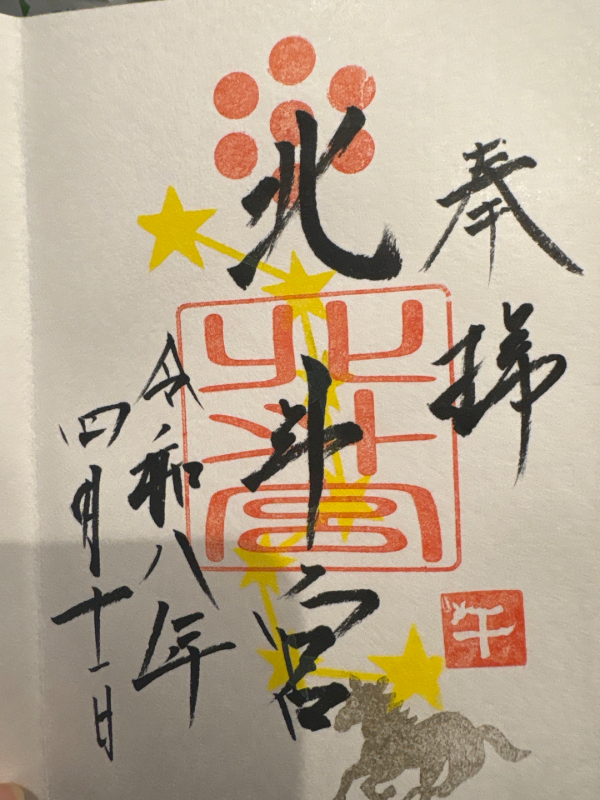 奉拝
北斗宮
北斗宮
午
令和八年
四月十一日